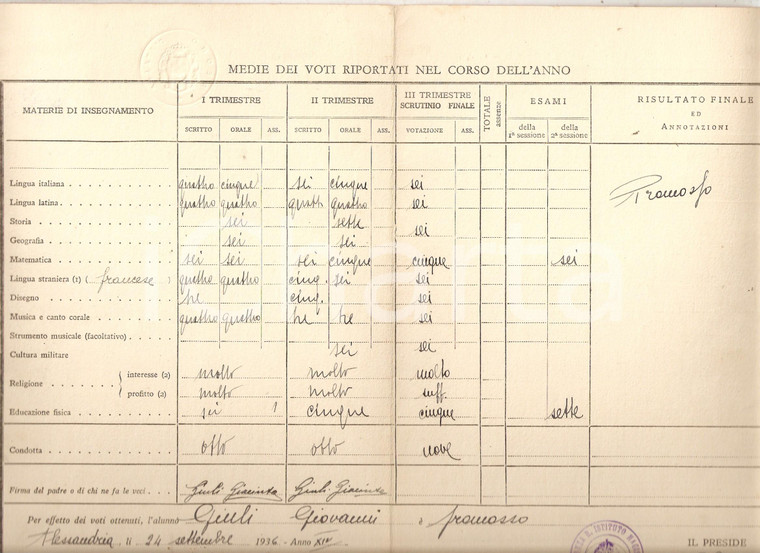 MEDIE DEI VOTI RIPORTATI NEL CORSO DELL'ANNO
MATERIE DI INSEGNAMENTO I TRIMESTRE II TRIMESTRE III TRIMESTRE SCRUTINIO FINALE TOTALE assenze ESAMI RISULTATO FINALE ED ANNOTAZIONI
SCRITTO ORALE ASS. SCRITTO ORALE ASS. VOTAZIONE ASS. della 1ª sessione della 2ª sessione
Lingua italiana quattro cinque sei cinque sei Promosso
Lingua latina quattro quattro quatt. quattro sei
Storia sei sette
sei
Geografia sei sei
Matematica sei sei sei cinque cinque sei
Lingua straniera (1) (francese) quattro quattro cinq. sei sei
Disegno tre cinq. sei
Musica e canto corale quattro quattro tre tre sei
Strumento musicale (facoltativo)
Cultura militare sei sei
Religione interesse (2) molto molto molto
profitto (2) molto molto suff.
Educazione fisica sei 1 cinque cinque sette
Condotta otto otto nove
Firma del padre o di chi ne fa le veci Giuli Giacinta Giuli Giacinta
Per effetto dei voti ottenuti, l'alunno Giuli Giovanni è promosso
Alessandria li 24 settembre 1936 - Anno XIV
R. ISTITUTO
IL PRESIDE